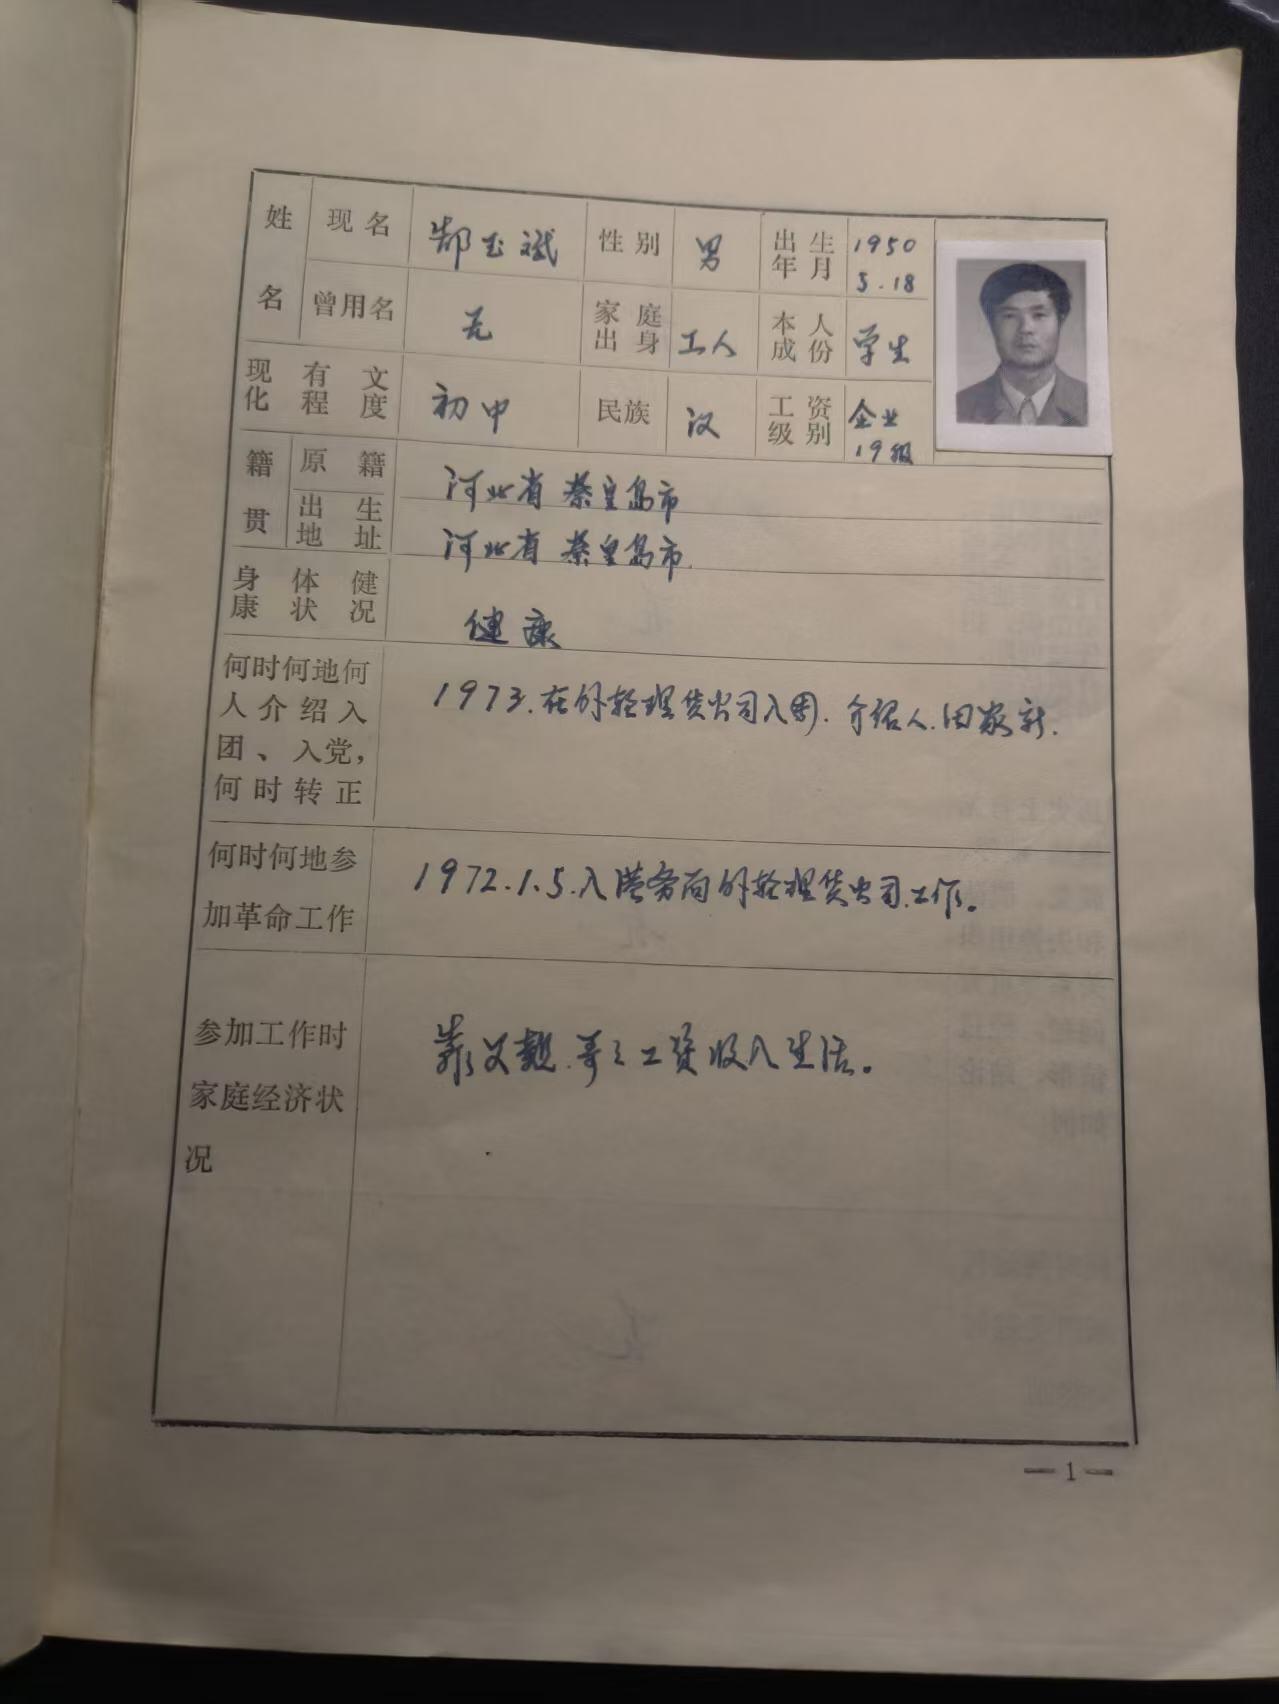 姓名 现名 郜玉斌 性别 男 出生年月 1950 5.18
曾用名 无 家庭出身 工人 本人成份 学生
现有文化程度 初中 民族 汉 工资级别 企业19级
籍贯 原籍 河北省秦皇岛市
出生地址 河北省秦皇岛市
身体健康状况 健康
何时何地何人介绍入团、入党,何时转正 1973.在外轮理货公司入团.介绍人.田家新.
何时何地参加革命工作 1972.1.5.入港务局外轮理货公司.工作。
参加工作时家庭经济状况 靠父亲.哥々工资收入生活。
— 1 —